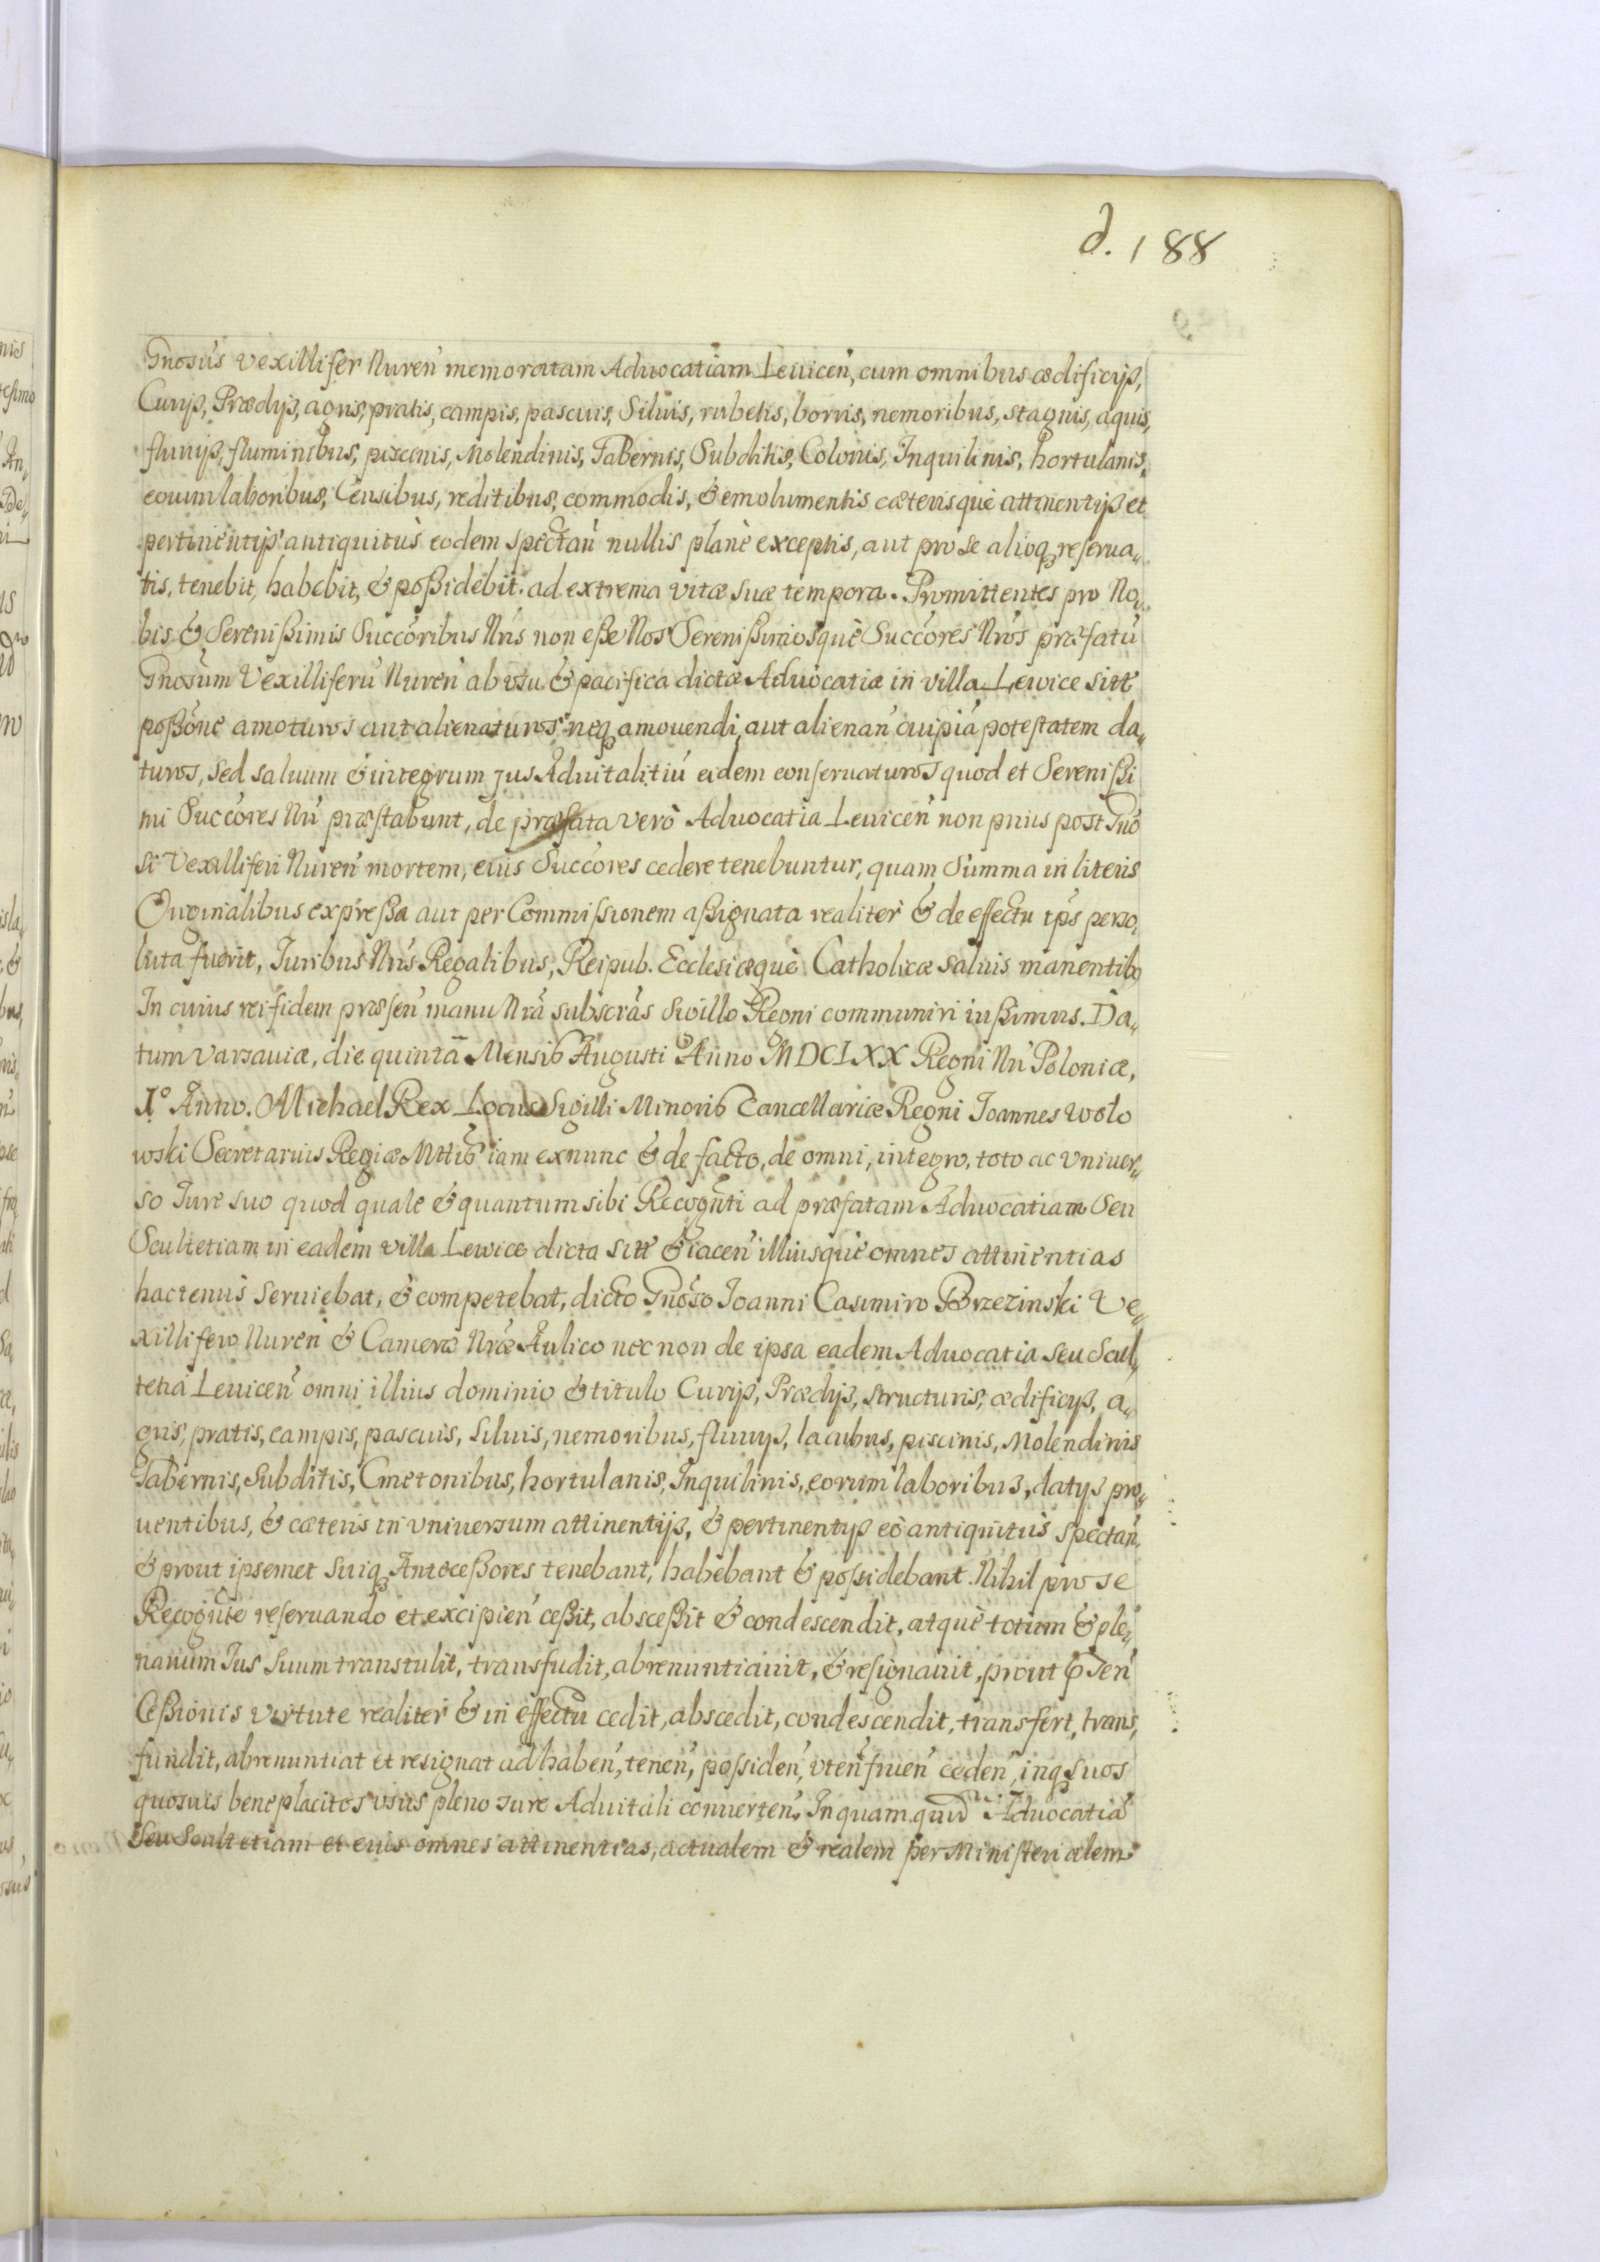 d. 188
Gnosús Vexillifer Nureń memoratam Advocatiam Leuiceń, cum omnibus ædificijs,
Curijs, Prædijs, agris, pratis, campis, pascuis, Siluis, rubetis, borris, nemoribus, stagnis, aquis,
fluuijs, fluminibus, piscinis, Molendinis, Tabernis, Subditis, Colonis, Inquilinis, hortulanis,
eorum laboribus, Censibus, reditibus, commodis, & emolumentis cæterisquè attinentijs et
pertinentijs antiquitùs eodem spectań nullis planè exceptis, aut pro se alioq reserua„
tis, tenebit, habebit, & poßidebit ad extrema vitæ suæ tempora. Promittentes pro No„
bis & Serenißimis Succoribus Nris non eße Nos Serenißimosquè Succores Nros præfatū
Gnosum Vexilliferū Nureń ab vsu & pacifica dictæ Advocatiæ in villa Lewice sitæ
poßone amoturos aut alienaturos neq amouendi, aut alienań cuipiā potestatem da„
turos, Sed saluum & integrum jus Aduitalitiū eidem conseruaturos quod et Serenißi
mi Succores Nri præstabunt, de præfata verò Advocatia Leuiceń non prius post Gno
si Vexilliferi Nureń mortem, eius Succores cedere tenebuntur, quam Summa in literis
Originalibus expreßa aut per Commissionem aßignata realiter & de effectu ips perso„
luta fuerit, Juribus Nris Regalibus, Reipub. Ecclesiæquè Catholicæ saluis manentib9
In cuius rei fidem præseń manu Nrā subscras Sigillo Regni communiri iußimus. Da„
tum Varsauiæ, die quintā Mensis Augusti Anno MDCLXX Regni Nri Poloniæ,
I⁰ Anno. Michael Rex Locus Sigilli Minoris Cancellariæ Regni Joannes Woło
wski Secretarius Regiæ Mttis iam exnunc & de facto, de omni, integro, toto ac vniuer„
so Jure suo quod quale & quantum sibi Recognti ad præfatam Advocatiam Seu
Scultetiam in eadem villa Lewice dicta sitt & iaceń illiusquè omnes attinentias
hactenùs seruiebat, & competebat, dicto Gnoso Joanni Casimiro Brzezinski Ve„
xillifero Nureń & Cameræ Nræ Aulico nec non de ipsa eadem Advocatia seu Scul„
tetia Leuiceń omni illius dominio & titulo Curijs, Prædijs, structuris, ædificijs, a„
gris, pratis, campis, pascuis, siluis, nemoribus, fluuijs, lacubus, piscinis, Molendinis
Tabernis, Subditis, Cmetonibus, hortulanis, Inquilinis, eorum laboribus, datijs pro„
uentibus, & cæteris in vniuersum attinentijs, & pertinentijs eò antiquitùs spectań
& prout ipsemet suiq Anteceßores tenebant, habebant & possidebant. Nihil pro se
Recognte reseruando et excipień ceßit, absceßit & condescendit, atquè totum & ple„
narium Jus Suum transtulit, transfudit, abrenuntiauit, & resignauit, prout pnseń
Ceßionis virtute realiter & in effectu cedit, abscedit, condescendit, transfert, trans„
fundit, abrenuntiat et resignat ad habeń, teneń, possideń, vteń frueń cedeń, inq suos
quosuis beneplacitos vsus pleno jure Aduitali conuerteń. In quam quid Advocatiā
Seu Scultetiam et eius omnes attinentias, actualem & realem per Ministerialem